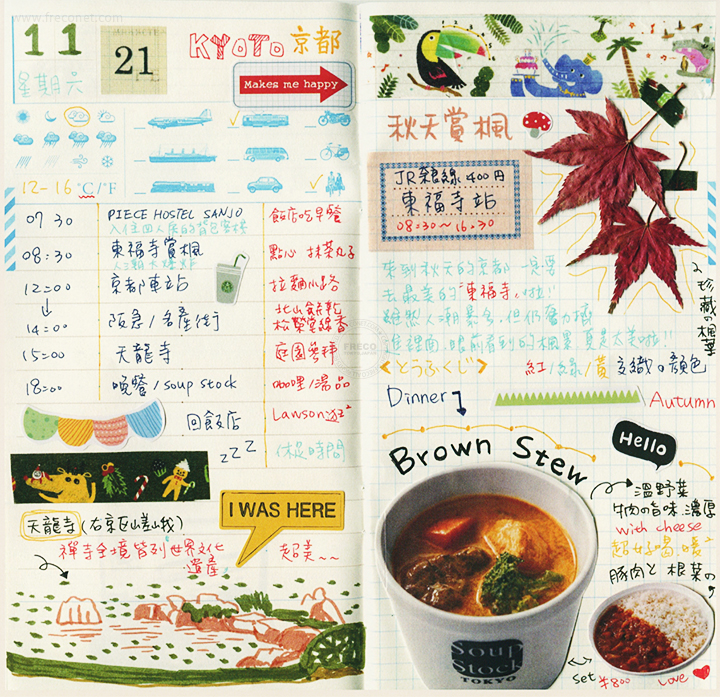 www.freconet.com
11
21
星期六
KYOTO 京都
Makes me happy
12-16 °C/°F
07:30 PIECE HOSTEL SANJO 飯店吃早餐
08:30 東福寺賞楓 點心 抹茶丸子
12:00 京都車站 拉麵小路
14:00 阪急/名產街 北山餅乾
松榮堂線香
15:00 天龍寺 庭園參拜
18:00 晚餐/soup stock 咖哩/湯品
回飯店 Lawson逛2
zzz 休息時間
I WAS HERE
天龍寺(右京区嵯峨)
禪寺全境皆列世界文化
遺產
超美~~
秋天賞楓
JR奈良線 400円
東福寺站
08:30~16:30
珍藏の楓葉
來到秋天的京都 一定要
去最美的"東福寺"啦!!
雖然人潮暴多,但仍奮力擠
進裡面,眼前看到的楓景真是太美啦!!
<とうふくじ> 紅/綠/黃 交織の顏色
Dinner Autumn
Hello
Brown Stew
溫野菜
牛肉の旨味 濃厚
with cheese
超好喝 暖2
豚肉と 根菜の
Soup
Stock
TOKYO
set ¥800 Love